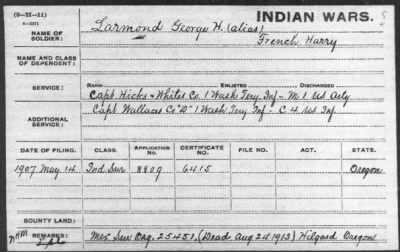 (3-II-11)
INDIAN WARS.
NAME OF SOLDIER: Larmond George H. (alias)
French Harry
NAME AND CLASS OF DEPENDENT:
SERVICE: RANK ENLISTED DISCHARGED
Capt. Hicks & Whites Co. 1 Wash Tery. Inf - M 1 US Arty
ADDITIONAL SERVICE: Capt Wallaces Co "D" 1 Wash Tery Inf - C 4 US Inf
DATE OF FILING. CLASS. APPLICATION No. CERTIFICATE No. FILE NO. ACT. STATE.
1907 May 14 Ind. Sur 8809 6415 Oregon
BOUNTY LAND:
REMARKS: Mex. Sur Orig. 25451, (Dead Aug 24 1913) Hilgard Oregon